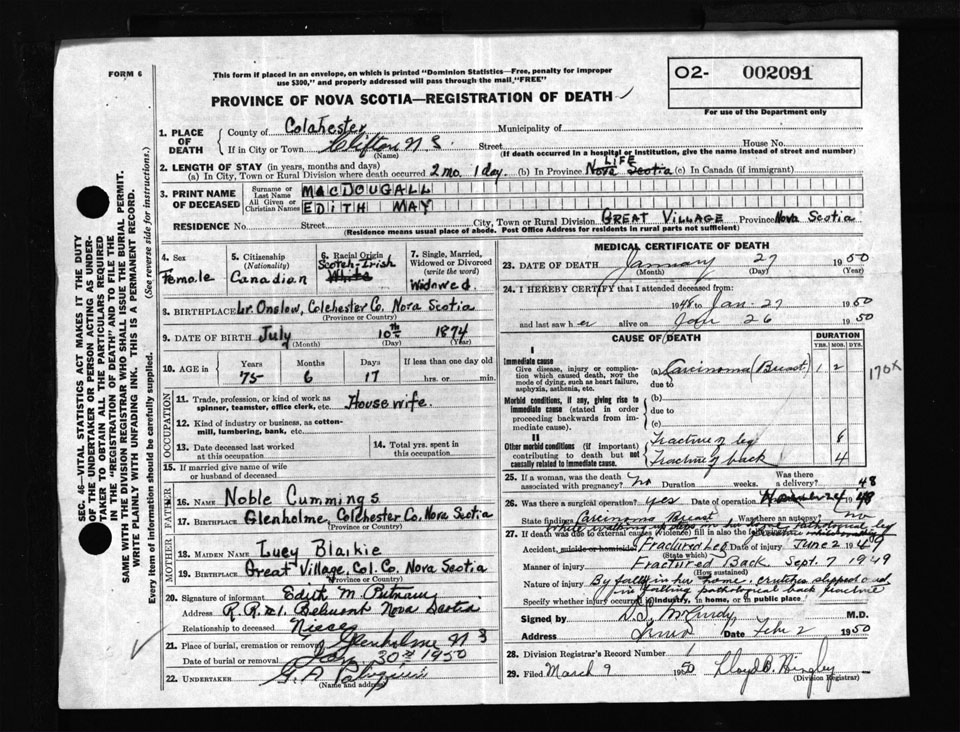 FORM 6
This form if placed in an envelope, on which is printed "Dominion Statistics—Free, penalty for improper
use $300," and properly addressed will pass through the mail, "FREE"
PROVINCE OF NOVA SCOTIA—REGISTRATION OF DEATH
O2- 002091
For use of the Department only
SEC. 46—VITAL STATISTICS ACT MAKES IT THE DUTY
OF THE UNDERTAKER OR PERSON ACTING AS UNDER-
TAKER TO OBTAIN ALL THE PARTICULARS REQUIRED
IN THE "REGISTRATION OF DEATH" AND TO FILE THE
SAME WITH THE DIVISION REGISTRAR WHO SHALL ISSUE THE BURIAL PERMIT.
WRITE PLAINLY WITH UNFADING INK. THIS IS A PERMANENT RECORD.
Every item of information should be carefully supplied. (See reverse side for instructions.)
1. PLACE OF DEATH
County of Colchester Municipality of
If in City or Town Clifton N S Street House No.
(Name) (If death occurred in a hospital or institution, give the name instead of street and number)
2. LENGTH OF STAY (in years, months and days)
(a) In City, Town or Rural Division where death occurred 2 mo. 1 day. (b) In Province Nova Scotia LIFE (c) In Canada (if immigrant)
3. PRINT NAME OF DECEASED
Surname or Last Name MACDOUGALL
All Given or Christian Names EDITH MAY
RESIDENCE No. Street City, Town or Rural Division GREAT VILLAGE Province Nova Scotia
(Residence means usual place of abode. Post Office Address for residents in rural parts not sufficient)
4. Sex Female
5. Citizenship (Nationality) Canadian
6. Racial Origin Scotch-Irish White
7. Single, Married, Widowed or Divorced (write the word) Widowed
8. BIRTHPLACE Lr. Onslow, Colchester Co. Nova Scotia
(Province or Country)
9. DATE OF BIRTH July 10th 1874
(Month) (Day) (Year)
10. AGE in Years Months Days If less than one day old
75 6 17 hrs. or min.
OCCUPATION
11. Trade, profession, or kind of work as spinner, teamster, office clerk, etc. Housewife.
12. Kind of industry or business, as cotton-mill, lumbering, bank, etc.
13. Date deceased last worked at this occupation
14. Total yrs. spent in this occupation
15. If married give name of wife or husband of deceased
FATHER
16. NAME Noble Cummings
17. BIRTHPLACE Glenholme, Colchester Co. Nova Scotia
(Province or Country)
MOTHER
18. MAIDEN NAME Lucy Blaikie
19. BIRTHPLACE Great Village, Col. Co. Nova Scotia
(Province or Country)
20. Signature of informant Edith M. Putnam
Address R.R.#1. Belmont Nova Scotia
Relationship to deceased Niece
21. Place of burial, cremation or removal Glenholme N S
Date of burial or removal Jan 30th 1950
22. UNDERTAKER G. A.
(Name and address)
MEDICAL CERTIFICATE OF DEATH
23. DATE OF DEATH January 27 1950
(Month) (Day) (Year)
24. I HEREBY CERTIFY that I attended deceased from:
1948 to Jan - 27 1950
and last saw her alive on Jan 26 1950
CAUSE OF DEATH DURATION
YRS. MOS. DYS.
I
Immediate cause
Give disease, injury or complication which caused death, NOT the mode of dying, such as heart failure, asphyxia, asthenia, etc.
(a) Carcinoma (Breast) 1 2
due to
170X
Morbid conditions, if any, giving rise to immediate cause (stated in order proceeding backwards from immediate cause).
(b)
due to
(c)
II
Other morbid conditions (if important) contributing to death but not causally related to immediate cause.
Fracture of leg 6
Fracture of back 4
25. If a woman, was the death associated with pregnancy? no Duration weeks. Was there a delivery?
26. Was there a surgical operation? yes Date of operation 1948
State findings Carcinoma Breast Was there an autopsy? no
27. If death was due to external causes (Violence) fill in also the
While walking up steps in her home pathological leg
Accident, suicide or homicide Fractured Leg Date of injury June 2 1949
(State which)
Manner of injury Fractured Back Sept. 7 1949
(How sustained)
Nature of injury By fall in her home. crutches slipped and
in falling pathological back fracture
Specify whether injury occurred in industry, in home, or in public place
Signed by D.S. McCurdy M.D.
Address Truro Date Feb 2 1950
28. Division Registrar's Record Number 1
29. Filed March 9 1950 Lloyd B. Hingley
(Division Registrar)